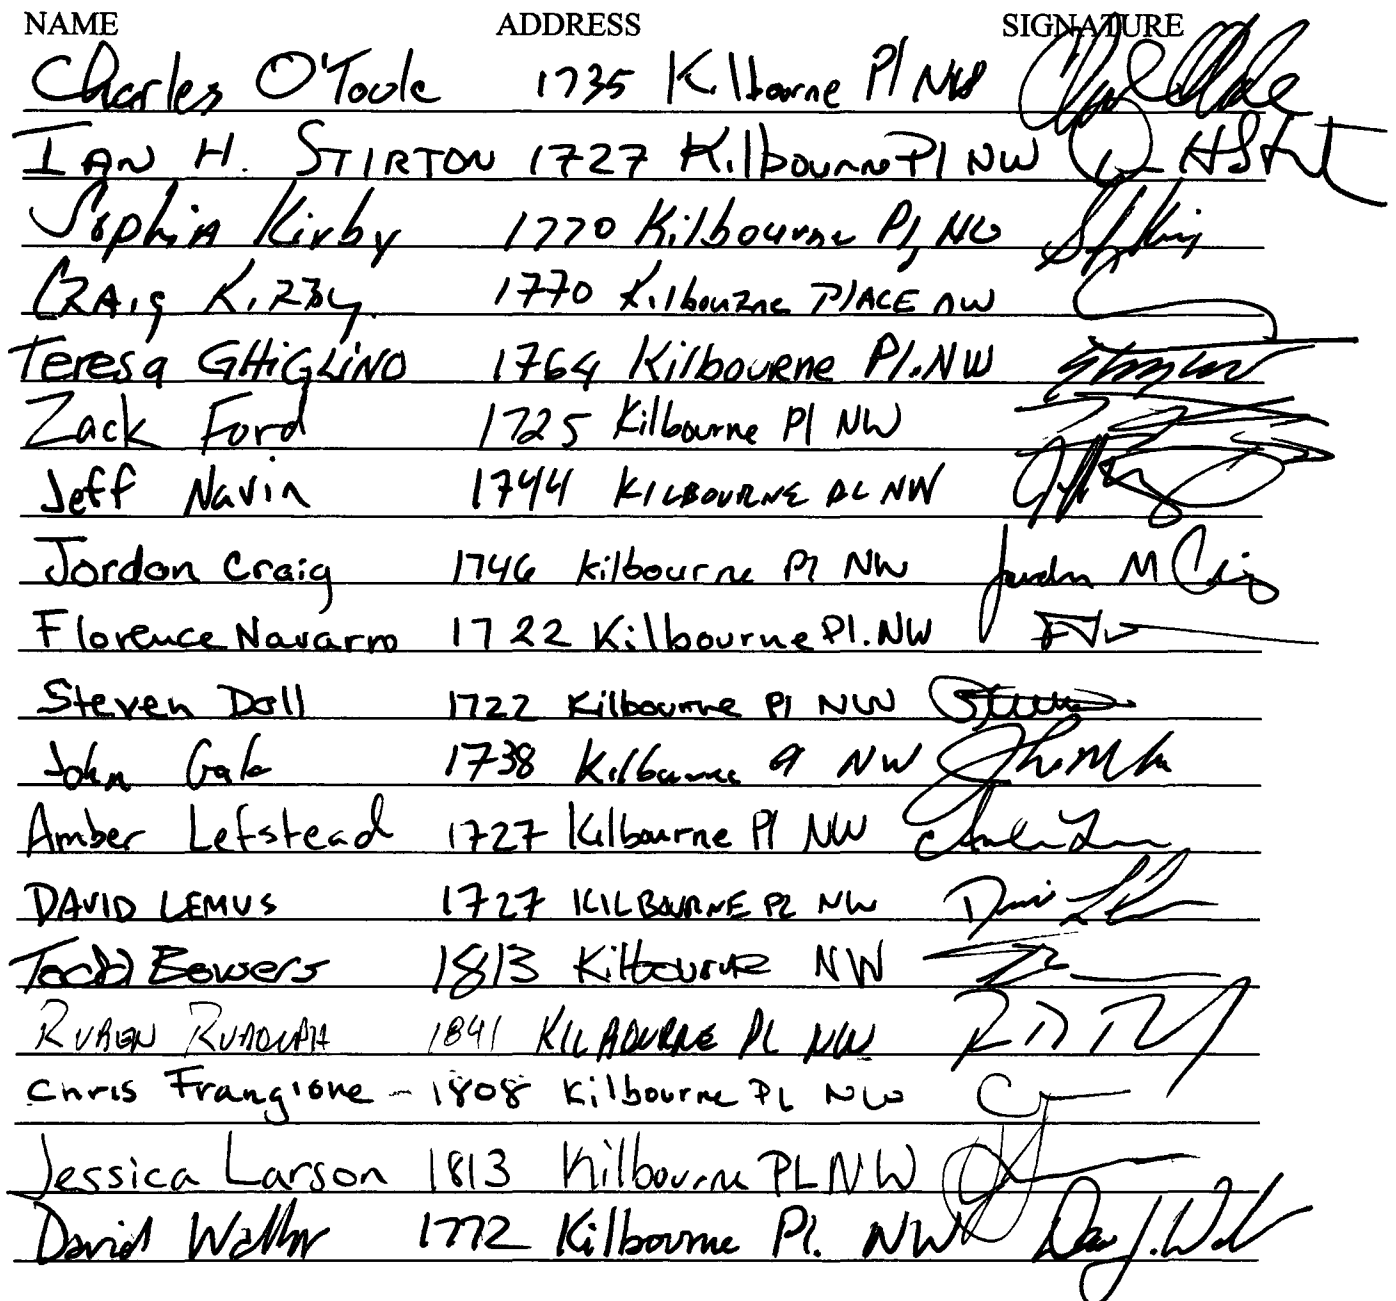 NAME ADDRESS SIGNATURE
Charles O'Toole 1735 Kilbourne Pl NW
IAN H. STIRTON 1727 Kilbourne Pl NW
Sophia Kirby 1770 Kilbourne Pl, NW
CRAig KiRBy 1770 KilbouRne PlACE NW
Teresa GHiGLiNO 1764 Kilbourne Pl. NW
Zack Ford 1725 Kilbourne Pl NW
Jeff Navin 1744 KILBOURNE PL NW
Jordon Craig 1746 Kilbourne Pl NW Jordon M Craig
Florence Navarro 1722 Kilbourne Pl. NW
Steven Doll 1722 Kilbourne Pl NW
John 1738 Kilbourne NW
Amber Lefstead 1727 Kilbourne Pl NW
DAVID LEMUS 1727 KILBOURNE PL NW
Todd Bowers 1813 Kilbourne NW
RUBEN 1841 KILBOURNE PL NW
Chris Frangione - 1808 Kilbourne PL NW
Jessica Larson 1813 Kilbourne PL NW
David 1772 Kilbourne Pl. NW